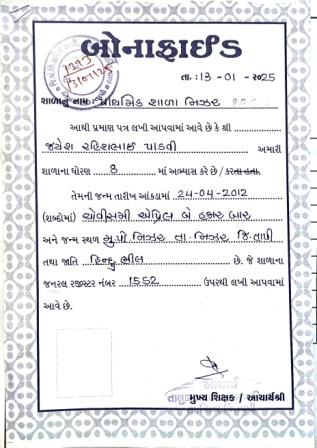 બોનાફાઈડ
તા. : 13 - 01 - 2025
શાળાનું નામ : પ્રાથમિક શાળા નિઝર
આથી પ્રમાણ પત્ર લખી આપવામાં આવે છે કે શ્રી
જયેશ રહિશભાઈ પાડવી અમારી
શાળાના ધોરણ 8 માં અભ્યાસ કરે છે / કરતા હતા.
તેમની જન્મ તારીખ આંકડામાં 24-04-2012
(શબ્દોમાં) ચોવીસમી એપ્રિલ બે હજાર બાર
અને જન્મ સ્થળ મુ.પો નિઝર તા-નિઝર જિ-તાપી
તથા જાતિ હિન્દુ ભીલ છે. જે શાળાના
જનરલ રજીસ્ટર નંબર 1552 ઉપરથી લખી આપવામાં
આવે છે.
આચાર્ય
મુખ્ય શિક્ષક / આચાર્યશ્રી